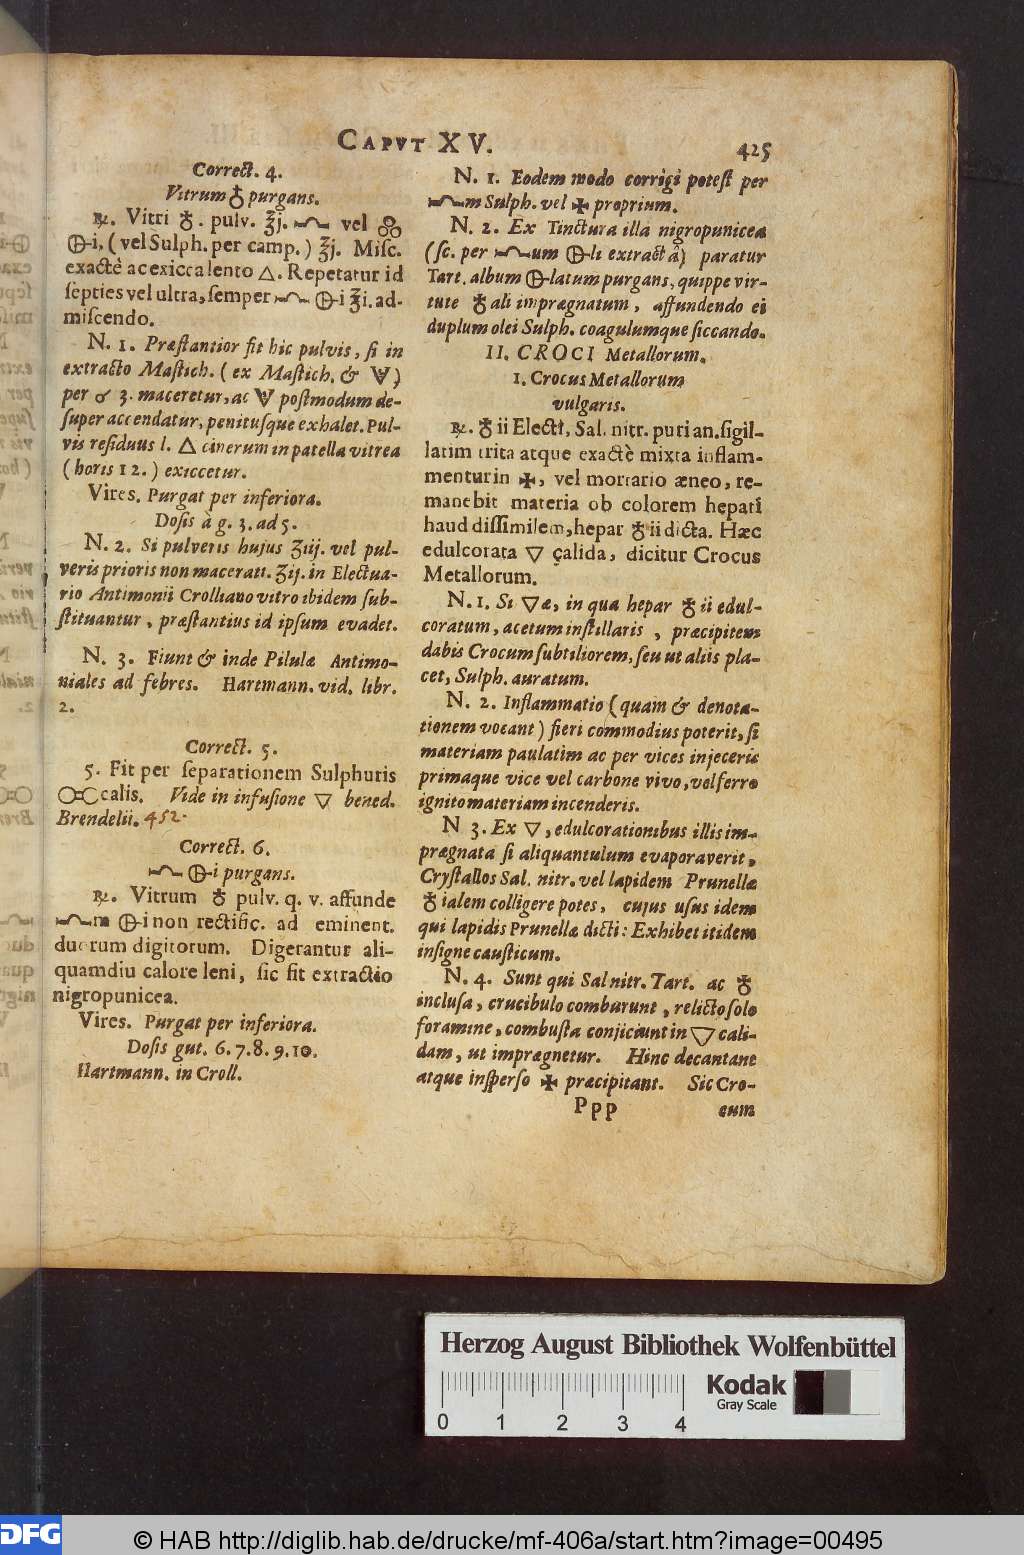 CAPVT XV. 425
Correct. 4.
Vitrum ♁ purgans.
℞. Vitri ♁. pulv. ʒj. vel
i, (vel Sulph. per camp.) ʒj. Misc.
exactè ac exicca lento △. Repetatur id
septies vel ultra, semper i ʒi. ad-
miscendo.
N. 1. Præstantior fit hic pulvis, si in
extracto Mastich. ( ex Mastich. & )
per 3. maceretur, ac postmodum de-
super accendatur, penitusque exhalet. Pul-
vis residuus l. △ cinerum in patella vitrea
( horis 12. ) exiccetur.
Vires. Purgat per inferiora.
Dosis à g. 3. ad 5.
N. 2. Si pulveris hujus ʒiij. vel pul-
veris prioris non macerati. ʒij. in Electua-
rio Antimonii Crolliano vitro ibidem sub-
stituantur, præstantius id ipsum evadet.
N. 3. Fiunt & inde Pilulæ Antimo-
niales ad febres. Hartmann. vid. libr.
2.
Correct. 5.
5. Fit per separationem Sulphuris
calis. Vide in infusione ▽ bened.
Brendelii. 452.
Correct. 6.
i purgans.
℞. Vitrum ♁ pulv. q. v. affunde
m i non rectific. ad eminent.
duorum digitorum. Digerantur ali-
quamdiu calore leni, sic fit extractio
nigropunicea.
Vires. Purgat per inferiora.
Dosis gut. 6. 7. 8. 9. 10.
Hartmann. in Croll.
N. 1. Eodem modo corrigi potest per
m Sulph. vel ✠ proprium.
N. 2. Ex Tinctura illa nigropunicea
(sc. per um li extractâ) paratur
Tart. album latum purgans, quippe vir-
tute ♁ali imprægnatum, affundendo ei
duplum olei Sulph. coagulumque siccando.
II. CROCI Metallorum.
1. Crocus Metallorum
vulgaris.
℞. ♁ii Electi, Sal. nitr. puri an. sigil-
latim trita atque exactè mixta inflam-
mentur in ✠, vel mortario æneo, re-
manebit materia ob colorem hepati
haud dissimilem, hepar ♁ii dicta. Hæc
edulcorata ▽ calida, dicitur Crocus
Metallorum.
N. 1. Si ▽æ, in qua hepar ♁ii edul-
coratum, acetum instillaris, præcipitem
dabis Crocum subtiliorem, seu ut aliis pla-
cet, Sulph. auratum.
N. 2. Inflammatio (quam & denota-
tionem vocant) fieri commodius poterit, si
materiam paulatim ac per vices injeceris
primaque vice vel carbone vivo, vel ferro
ignito materiam incenderis.
N 3. Ex ▽, edulcorationibus illis im-
prægnata si aliquantulum evaporaverit,
Crystallos Sal. nitr. vel lapidem Prunellæ
♁ialem colligere potes, cujus usus idem
qui lapidis Prunellæ dicti: Exhibet itidem
insigne causticum.
N. 4. Sunt qui Sal nitr. Tart. ac ♁
inclusa, crucibulo comburunt, relicto solo
foramine, combusta conjiciunt in ▽ cali-
dam, ut imprægnetur. Hinc decantant
atque insperso ✠ præcipitant. Sic Cro-
Ppp cum
Herzog August Bibliothek Wolfenbüttel
0 1 2 3 4
Kodak
Gray Scale
DFG
© HAB http://diglib.hab.de/drucke/mf-406a/start.htm?image=00495